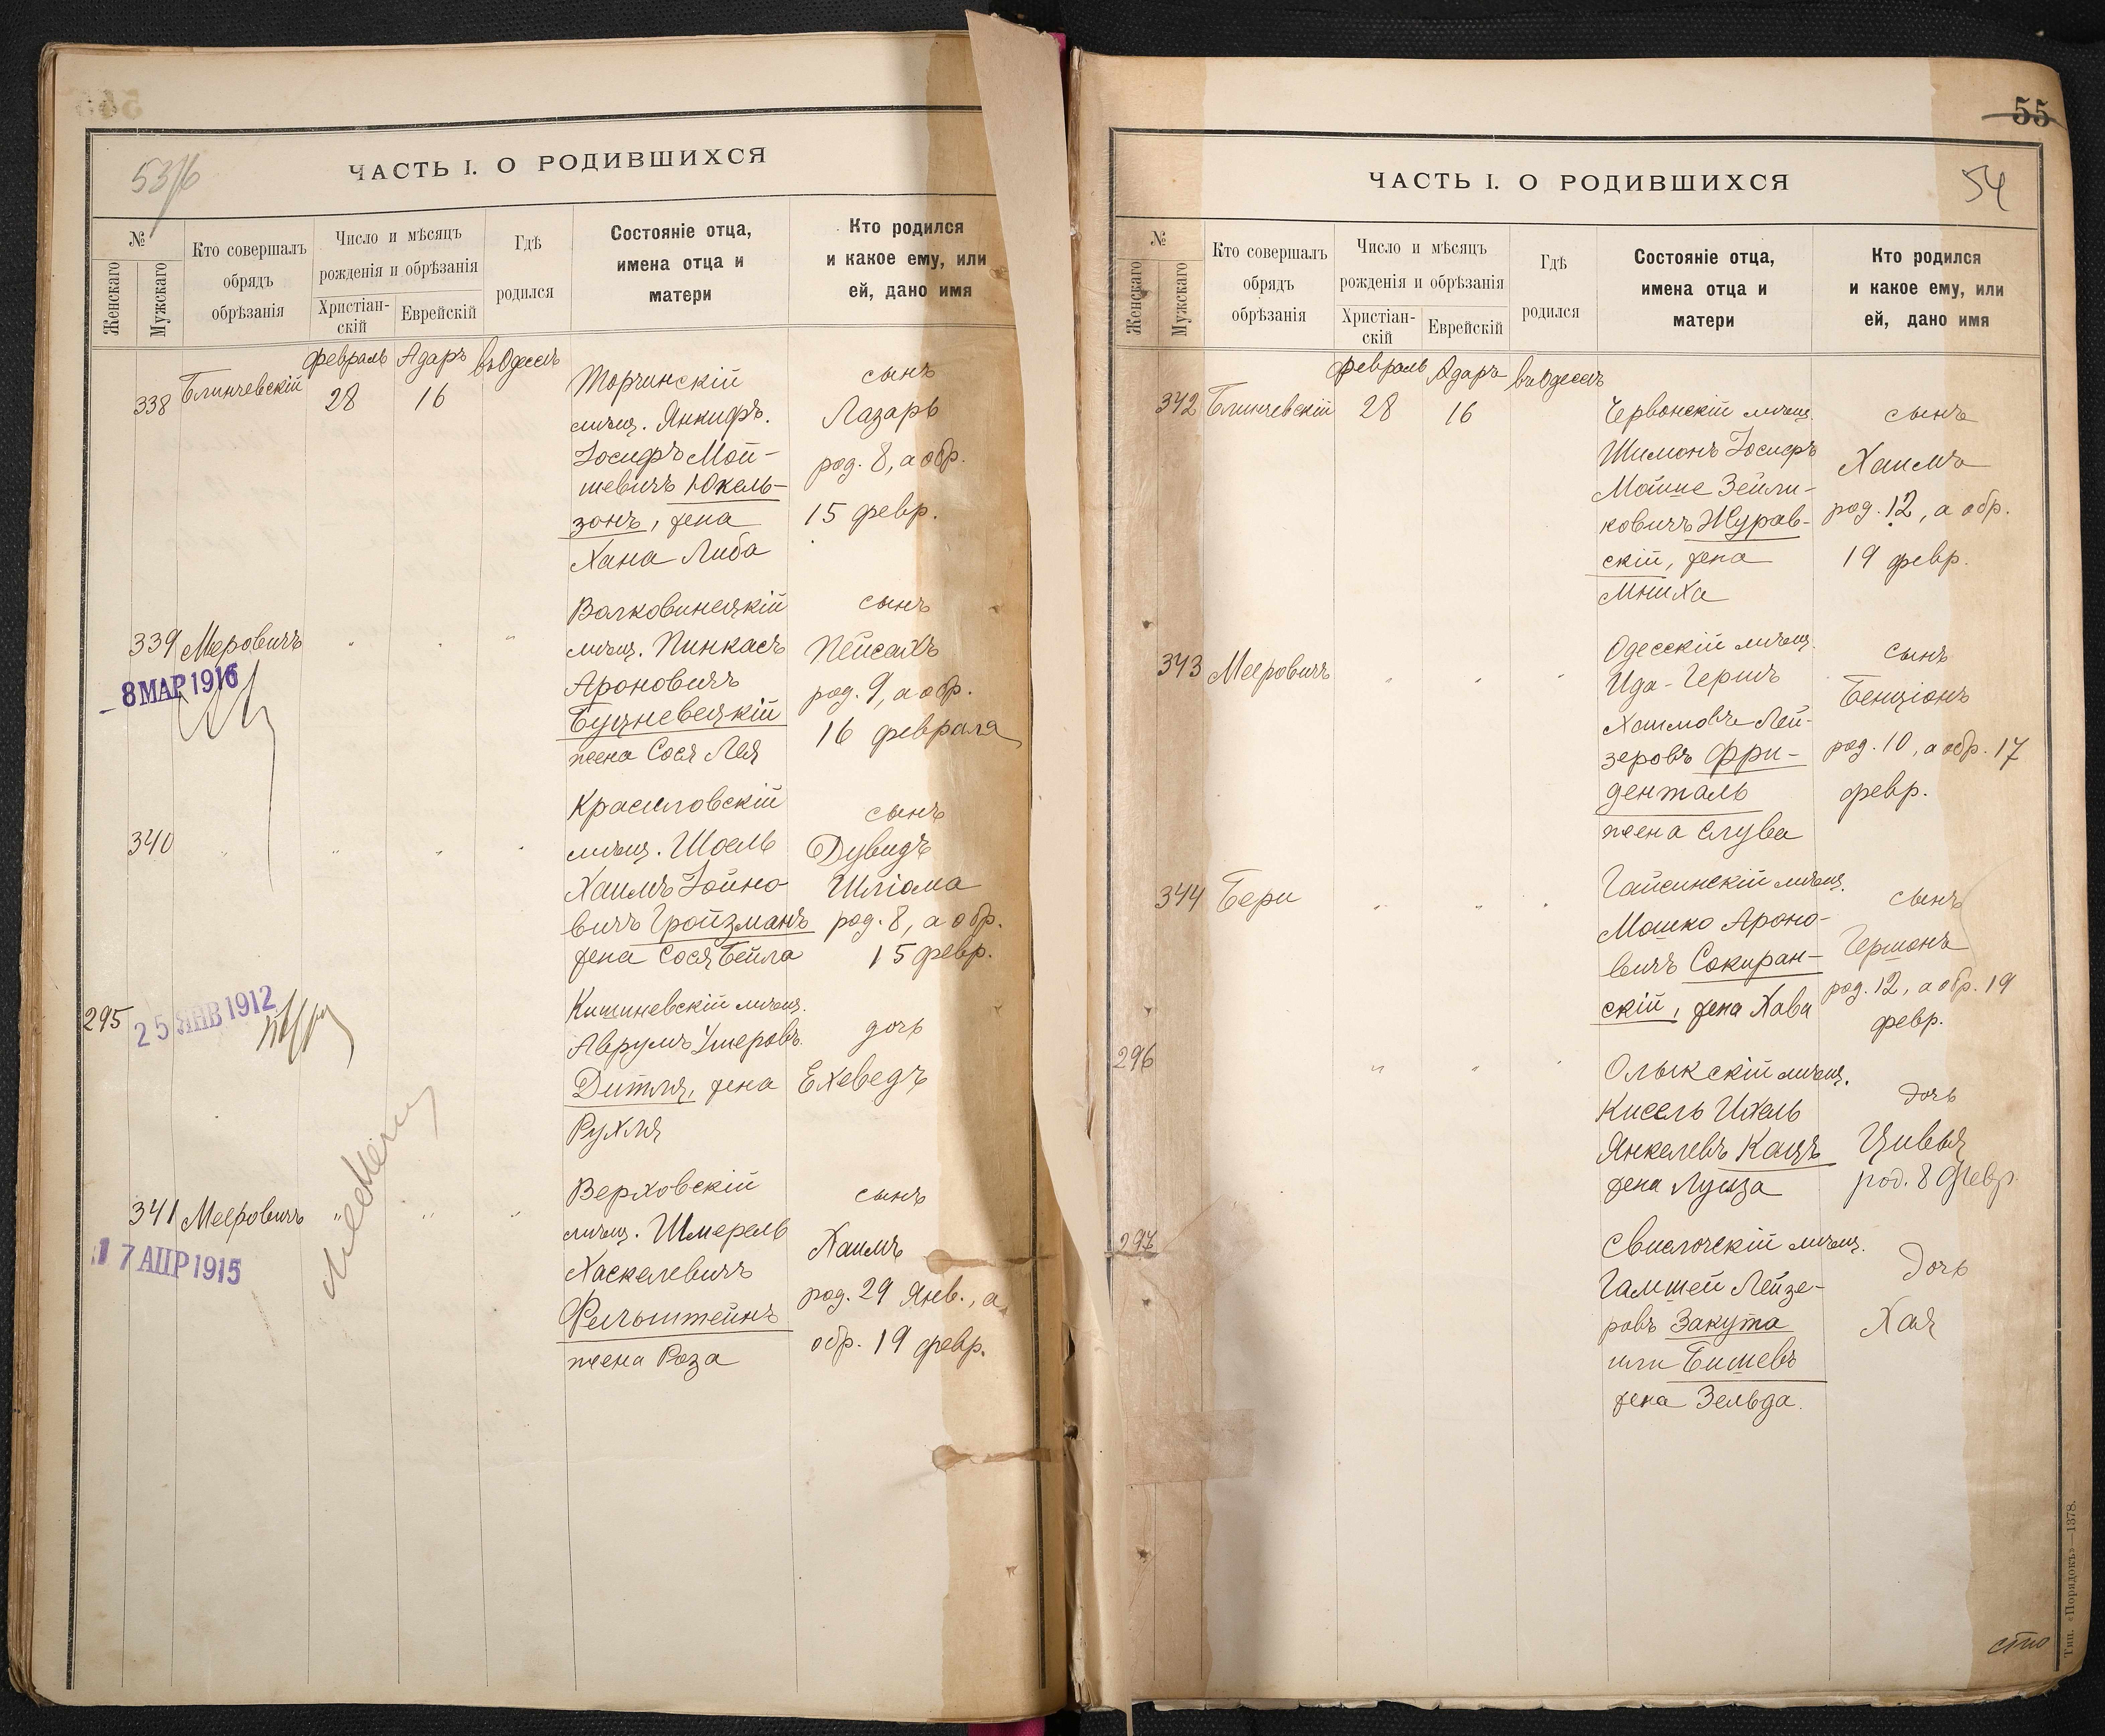 53/б
ЧАСТЬ I. О РОДИВШИХСЯ
№
Женскаго
Мужскаго
Кто совершалъ
обрядъ
обрѣзанія
Число и мѣсяцъ
рожденія и обрѣзанія
Христіан-
скій
Еврейскій
Гдѣ
родился
Состояніе отца,
имена отца и
матери
Кто родился
и какое ему, или
ей, дано имя
февраль Адаръ въ Одессѣ
338 Блинчевскій 28 16
Торчинскій
мѣщ. Янкифъ
Іосифъ Мой-
шевичъ Юкель-
зонъ, жена
Хана Либа
сынъ
Лазарь
род. 8, а обр.
15 февр.
339 Меровичъ " " "
8 МАР 1916
Волковинецкій
мѣщ. Пинкасъ
Ароновичъ
Буцневецкій
жена Сося Лея
сынъ
Пейсахъ
род. 9, а обр.
16 февраля
340 " " " "
Красиловскій
мѣщ. Шоель
Хаимъ Іойно-
вичъ Гройзманъ
жена Сося Бейла
сынъ
Дувидъ
Шліома
род. 8, а обр.
15 февр.
295
25 ЯНВ 1912
Кишиневскій мѣщ.
Аврумъ Умеровъ
Дитля, жена
Рухля
дочь
Ехеведъ
341 Мееровичъ " " "
17 АПР 1915
Верховскій
мѣщ. Шмерель
Хаскелевичъ
Фельштейнъ
жена Роза
сынъ
Хаимъ
род. 29 Янв., а
обр. 19 февр.
55
54
ЧАСТЬ I. О РОДИВШИХСЯ
№
Женскаго
Мужскаго
Кто совершалъ
обрядъ
обрѣзанія
Число и мѣсяцъ
рожденія и обрѣзанія
Христіан-
скій
Еврейскій
Гдѣ
родился
Состояніе отца,
имена отца и
матери
Кто родился
и какое ему, или
ей, дано имя
февраль Адаръ въ Одессѣ
342 Блинчевскій 28 16
Червонскій мѣщ.
Шимонъ Іосифъ
Мойше Зейли-
ковичъ Журав-
скій, жена
Мниха
сынъ
Хаимъ
род. 12, а обр.
19 февр.
343 Мееровичъ " " "
Одесскій мѣщ.
Ида-Гершъ
Хаимовъ Лей-
зеровъ Фри-
денталь
жена Слува
сынъ
Бенціонъ
род. 10, а обр. 17
февр.
344 Бери " " "
Гайсинскій мѣщ.
Мошко Ароно-
вичъ Сокиран-
скій, жена Хава
сынъ
Гершонъ
род. 12, а обр. 19
февр.
296 " " "
Олыкскій мѣщ.
Кисель Ихель
Янкелевъ Кацъ
жена Луиза
дочь
Цивья
род. 8 Февр.
297
Свислочскій мѣщ.
Гамшей Лейзе-
ровъ Закута
или Бишевъ
жена Зельда.
дочь
Хая
Тип. «Порядокъ»—1378.